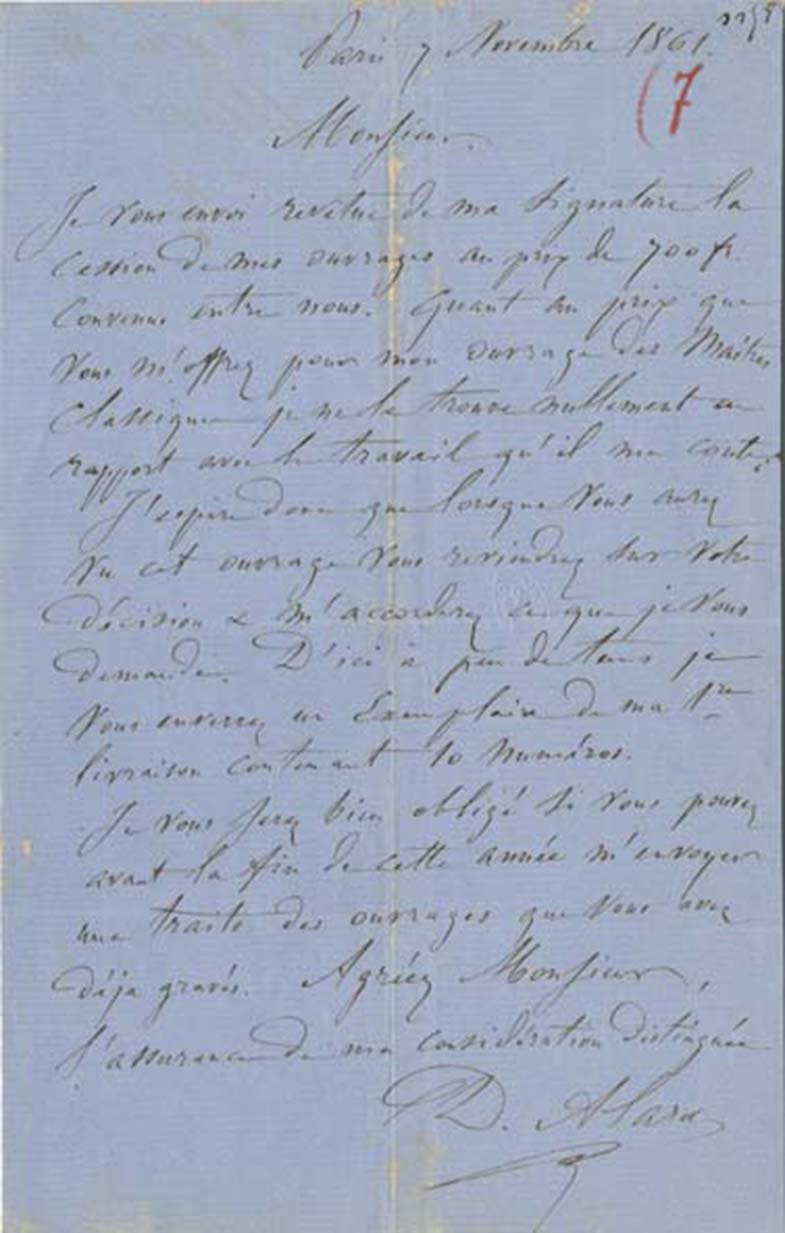 Paris 7 Novembre 1861.
(7
Monsieur.
Je vous envoi revetue de ma Signature la
Cession de mes ouvrages au prix de 700 fr.
Convenue entre nous. Quant au prix que
Vous m'offrez pour mon ouvrage des Maîtres
Classiques je ne le trouve nullement en
rapport avec le travail qu'il me coute.
J'espère donc que lorsque Vous aurez
Vu cet ouvrage Vous reviendrez sur Votre
décision & m'accorderez ce que je Vous
demande. D'ici à peu de tems je
Vous enverrez un Exemplaire de ma 1re
livraison contenant 10 Numéros.
Je vous serez bien obligé si Vous pouvez
avant la fin de cette année m'envoyer
une traite des ouvrages que Vous avez
déja gravés. Agréez Monsieur,
l'assurance de ma considération distinguée
D. Alard